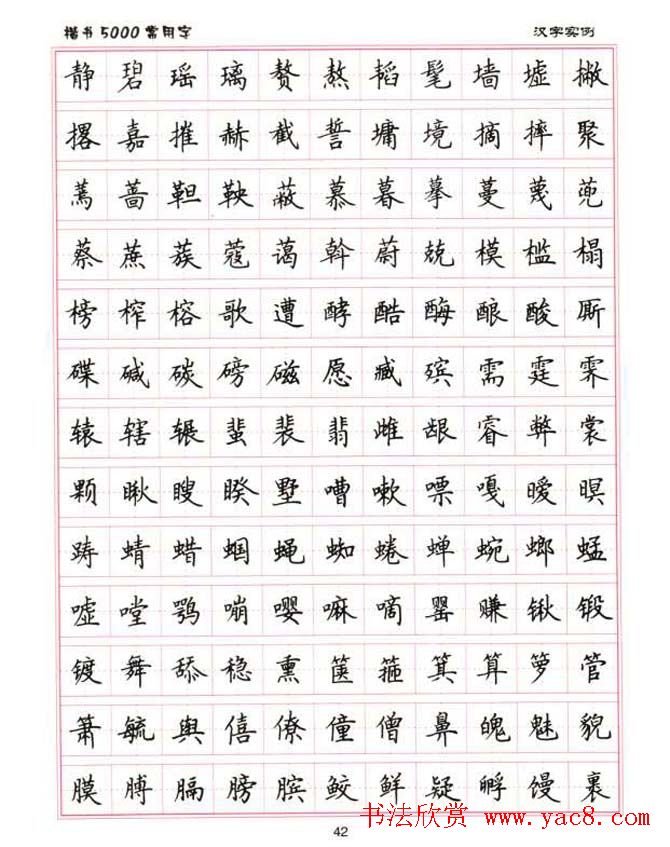 楷书5000常用字 汉字实例
静碧瑶璃赘熬韬髦墙墟撇
撂嘉摧赫截誓墉境摘摔聚
蔫蔷靼鞅蔽慕暮摹蔓蔑蔸
蔡蔗蔟蔻蔼斡蔚兢模槛榻
榜榨榕歌遭酵酷酶酿酸厮
碟碱碳磅磁愿臧殡需霆霁
辕辖辗蜚裴翡雌龈睿弊裳
颗瞅瞍睽墅嘈嗽嘌嘎暧暝
踌蜻蜡蝈蝇蜘蜷蝉蜿螂蜢
嘘嘡鹗嘣嘤嘛嘀罂赚锹锻
镀舞舔稳熏箧箍箕算箩管
箫毓舆僖僚僮僧鼻魄魅貌
膜膊膈膀膑鲛鲜疑孵馒裹
42
书法欣赏 www.yac8.com